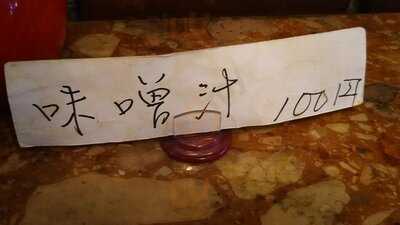 味噌汁 100円